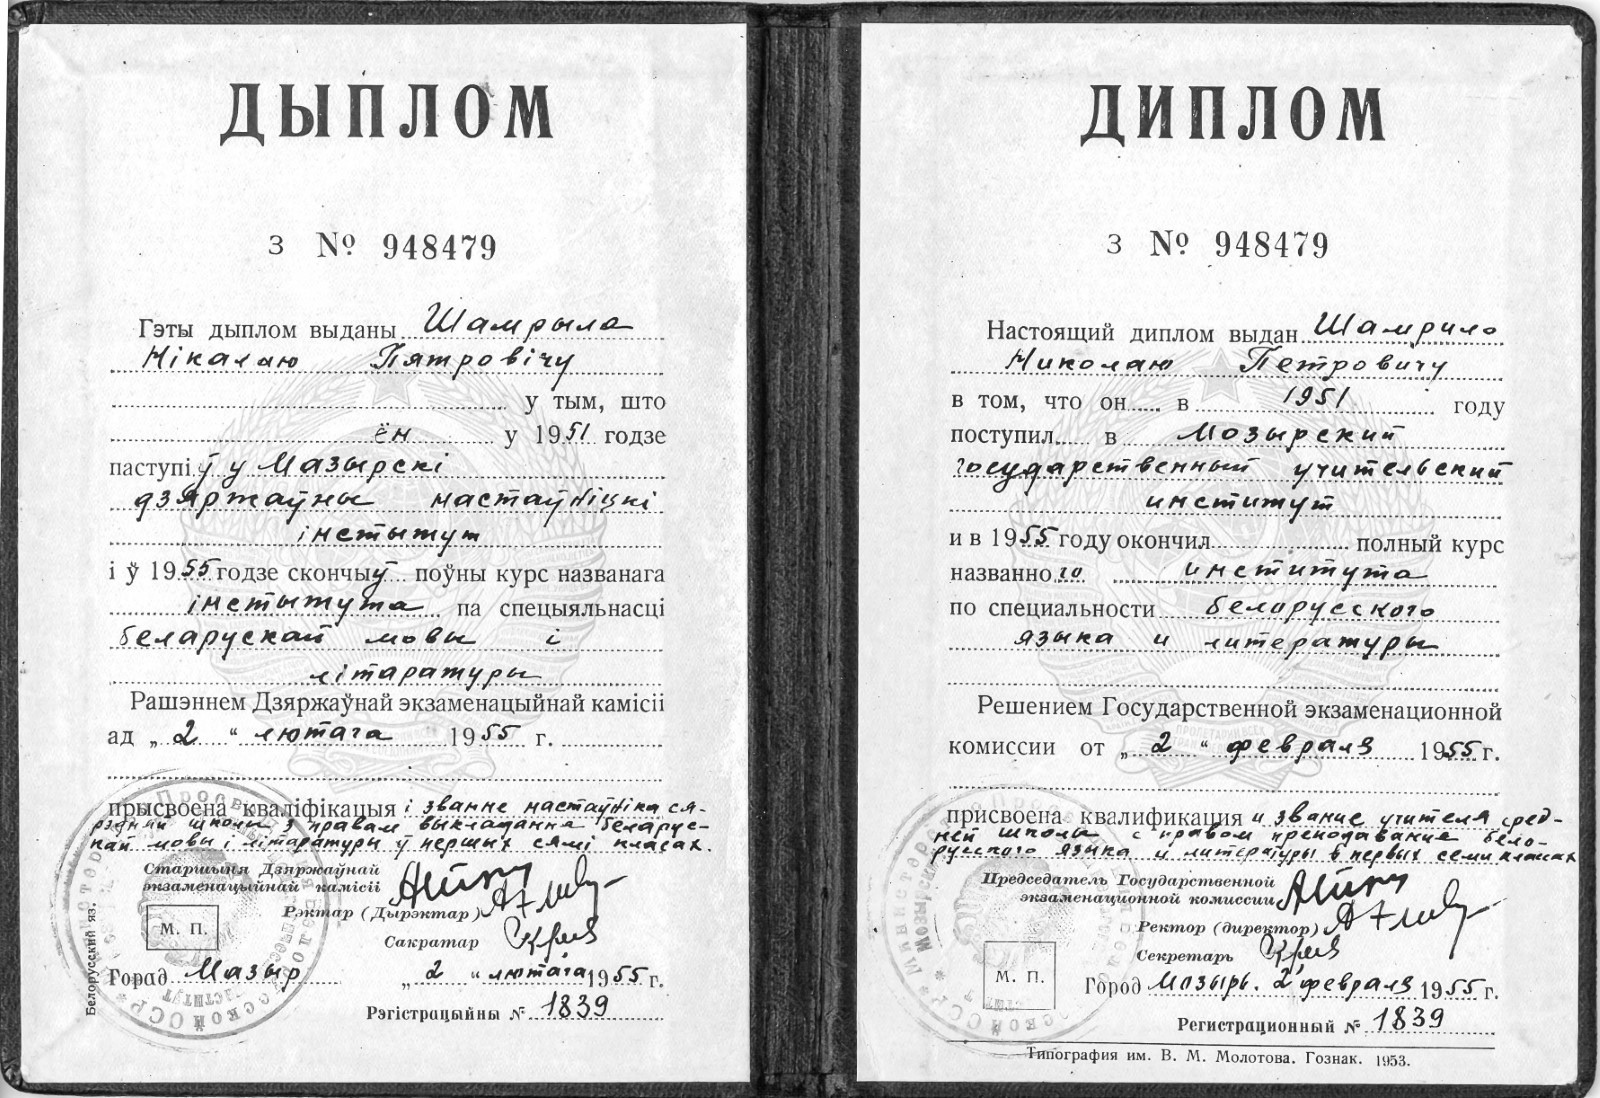 ДЫПЛОМ
З № 948479
Гэты дыплом выданы Шамрыла
Нікалаю Пятровічу
у тым, што
ён у 1951 годзе
паступіў у Мазырскі
дзяржаўны настаўніцкі
інстытут
і ў 1955 годзе скончыў поўны курс названага
інстытута па спецыяльнасці
беларускай мовы і
літаратуры
Рашэннем Дзяржаўнай экзаменацыйнай камісіі
ад „2“ лютага 1955 г.
прысвоена кваліфікацыя і званне настаўніка ся-
рэдняй школы з правам выкладання беларус-
кай мовы і літаратуры ў першых сямі класах.
Старшыня Дзяржаўнай
экзаменацыйнай камісіі
Рэктар (Дырэктар)
Сакратар
М. П.
Горад Мазыр „2“ лютага 1955 г.
Рэгістрацыйны № 1839
Белорусский яз.
ДИПЛОМ
З № 948479
Настоящий диплом выдан Шамрило
Николаю Петровичу
в том, что он в 1951 году
поступил в Мозырский
государственный учительский
институт
и в 1955 году окончил полный курс
названного института
по специальности белорусского
языка и литературы
Решением Государственной экзаменационной
комиссии от „2“ февраля 1955 г.
присвоена квалификация и звание учителя сред-
ней школы с правом преподавание бело-
русского языка и литературы в первых семи классах
Председатель Государственной
экзаменационной комиссии
Ректор (директор)
Секретарь
М. П.
Город Мозырь. 2 февраля 1955 г.
Регистрационный № 1839
Типография им. В. М. Молотова. Гознак. 1953.